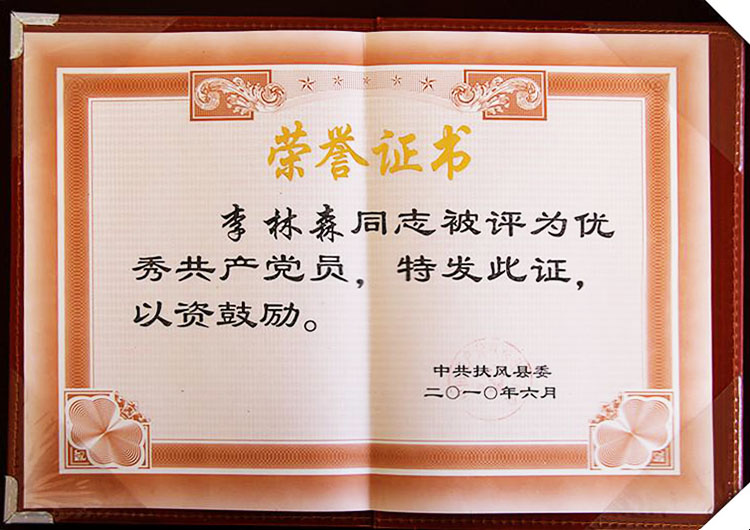 荣誉证书
李林森同志被评为优
秀共产党员，特发此证，
以资鼓励。
中共扶风县委
二〇一〇年六月